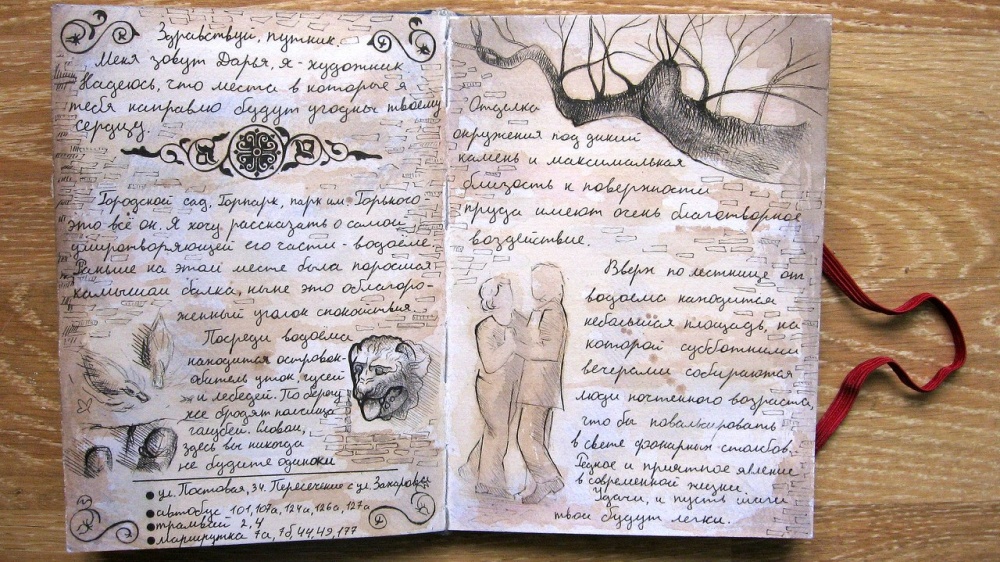 Здравствуй, путник.
Меня зовут Дарья, я - художник
Надеюсь, что места в которые я
тебя направлю будут угодны твоему
сердцу.
Городской сад, Горпарк, парк им. Горького
это всё он. Я хочу рассказать о самой
умиротворяющей его части - водоеме.
Раньше на этом месте была поросшая
камышом балка, ныне это облагоро-
женный уголок спокойствия.
Посреди водоема
находится островок-
обитель уток, гусей
и лебедей. По берегу
же бродят полчища
голубей. Словом,
здесь вы никогда
не будите одиноки
ул. Постовая, 34. Пересечение с ул. Захарова
автобус 101, 107а, 124а, 126а, 127а
трамвай 2, 4
маршрутка 7а, 7б, 44, 49, 177
Отделка
окружения под дикий
камень и максимальная
близость к поверхности
пруда имеют очень благотворное
воздействие.
Вверх по лестнице от
водоема находится
небольшая площадь, на
которой субботними
вечерами собираются
люди почтенного возраста,
что бы повальсировать
в свете фонарных столбов.
Редкое и приятное явление
в современной жизни.
Удачи, и пусть шаги
твои будут легки.